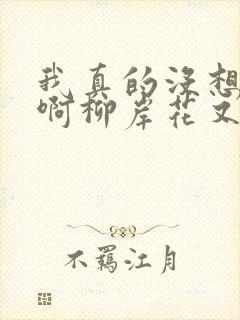 我真的没想
啊柳岸花又
不羁江月